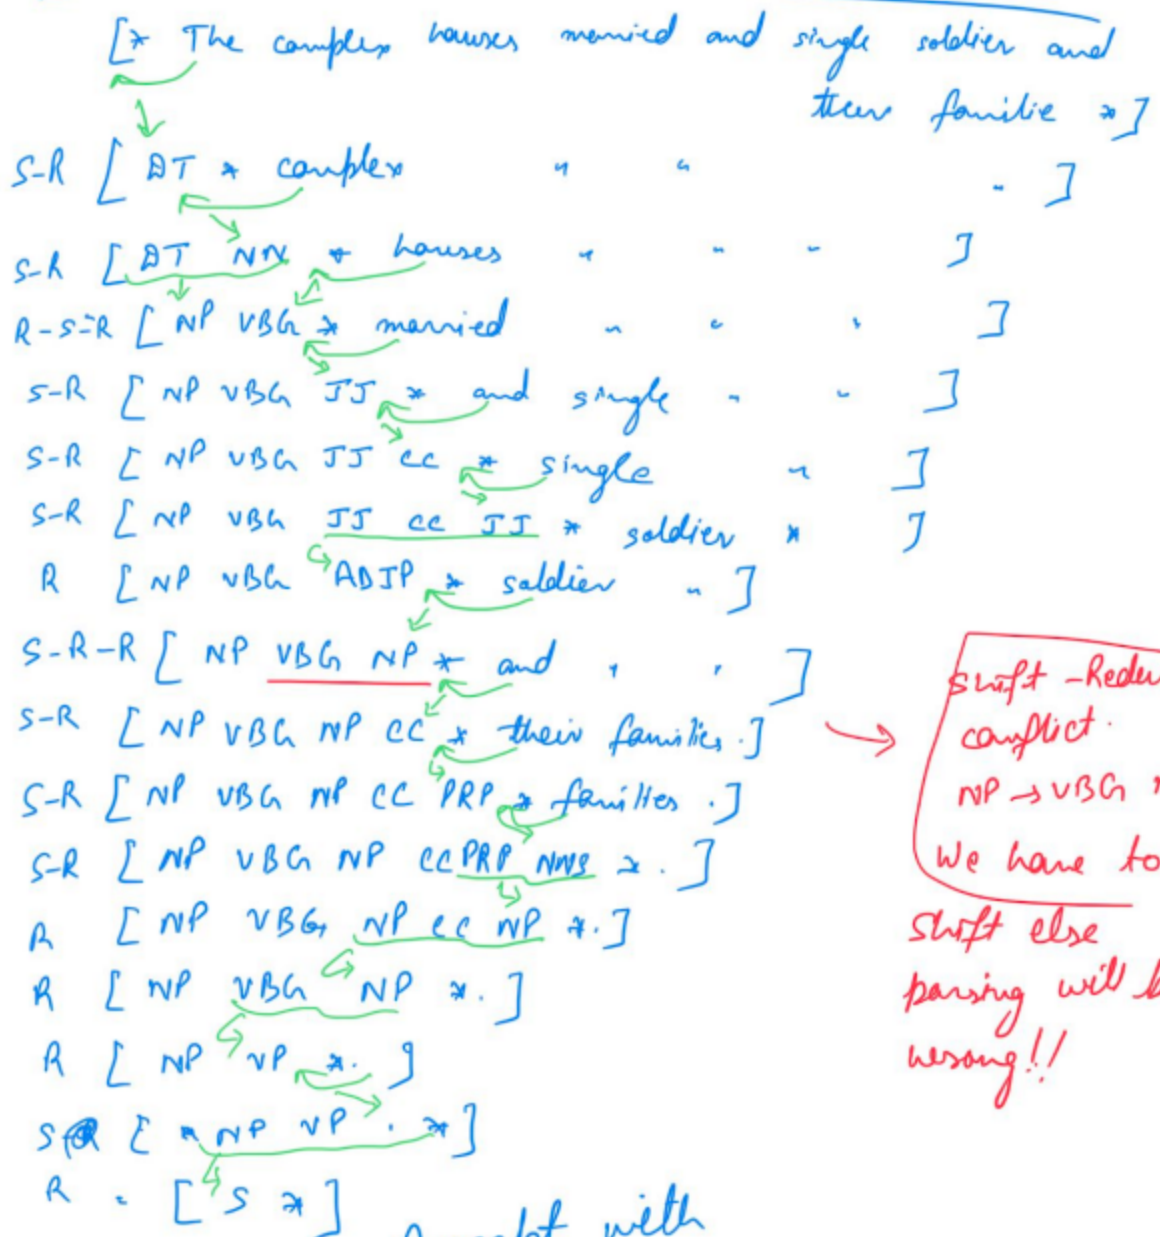 [* The complex houses married and single soldier and
their familie *]
S-R [ DT * complex " " " ]
S-R [ DT NN * houses " " " ]
R-S-R [ NP VBG * married " " " ]
S-R [ NP VBG JJ * and single " " ]
S-R [ NP VBG JJ CC * single " ]
S-R [ NP VBG JJ CC JJ * soldier * ]
R [ NP VBG ADJP * soldier " ]
S-R-R [ NP VBG NP * and " " ]
S-R [ NP VBG NP CC * their families .]
S-R [ NP VBG NP CC PRP * families .]
S-R [ NP VBG NP CC PRP NNS * . ]
R [ NP VBG NP CC NP *.]
R [ NP VBG NP *. ]
R [ NP VP *. ]
S [ * NP VP . *]
R = [ S * ]
with
Shift -
conflict.
NP → VBG
We have to
Shift else
parsing will
wrong!!